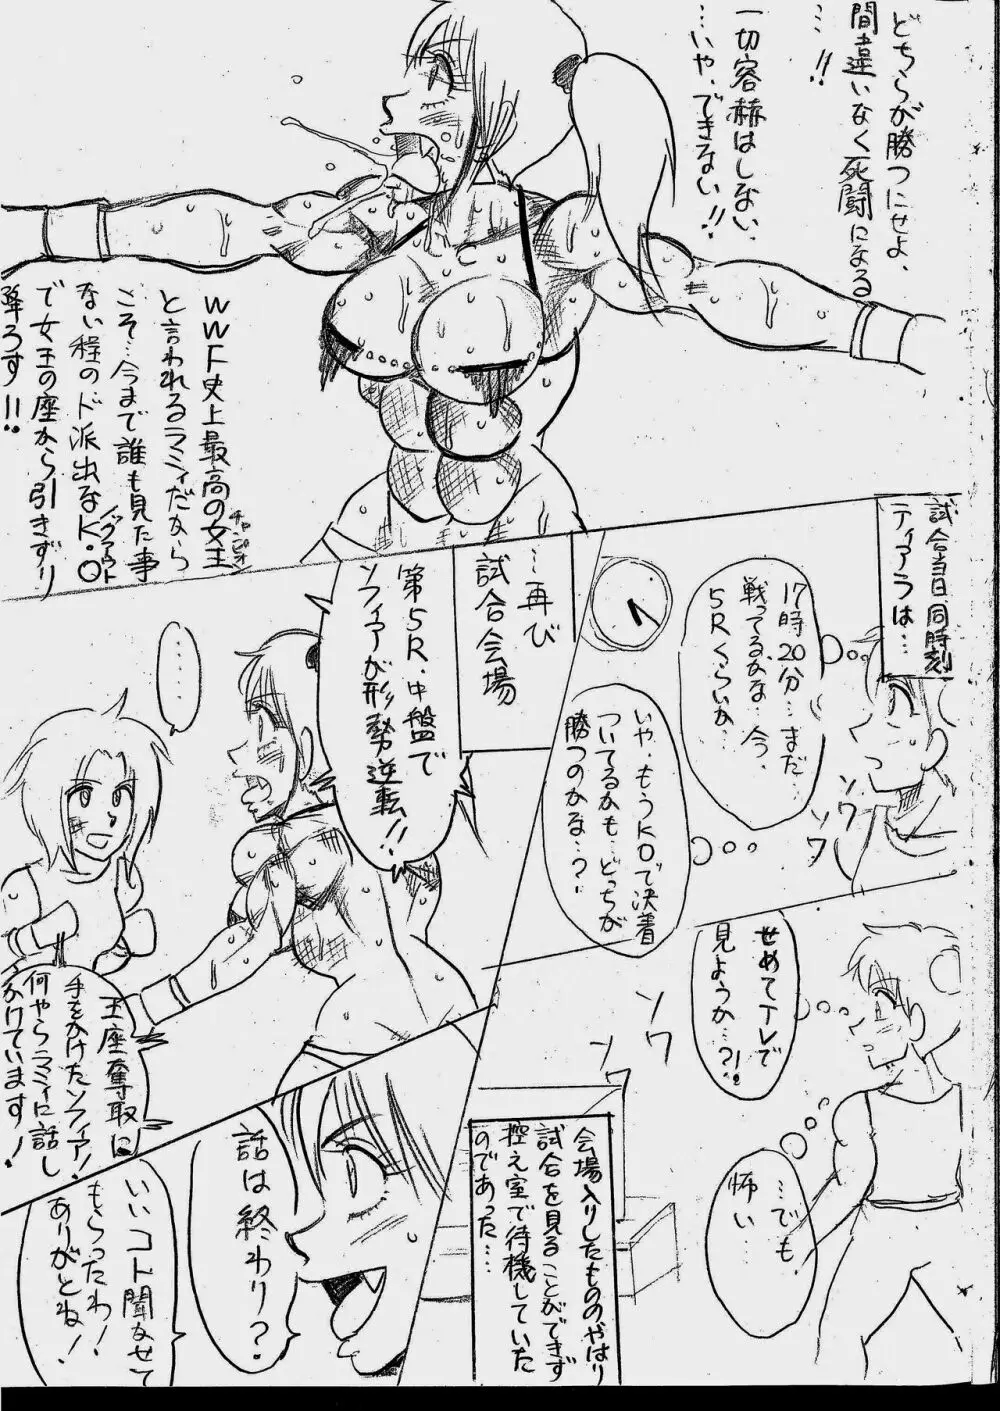 どちらが勝つにせよ、
間違いなく死闘になる
…!!
一切容赦はしない、
…いや、できない!!
WWF史上最高の女王
チャンピオン
と言われるラミィだから
こそ…今まで誰も見た事
ない程のド派出なK.O
ノックアウト
で女王の座から引きずり
降ろす!!
試合当日、同時刻
ティアラは…
17時20分…まだ
戦ってるかな…今、
5Rくらいか…
ソワ
ソワ
いや、もうKOで決着
ついてるかも…どっちが
勝つのかな…?
せめてTレで
見ようか…?!
ソワ
ソワ
…でも、
怖い…
会場入りしたもののやはり
試合を見ることができず
控え室で待機していた
のであった…
…再び
試合会場
第5R、中盤で
ソフィアが形勢逆転!!
……
王座奪取に
手をかけたソフィア!
何やらラミィに話し
かけています!
話は終わり?
いいコト聞かせて
もらったわ!
ありがとね!